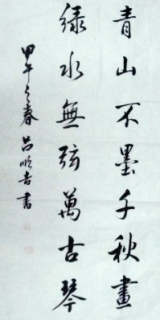 青山不墨千秋畫
綠水無弦萬古琴
甲午之春 吕順書